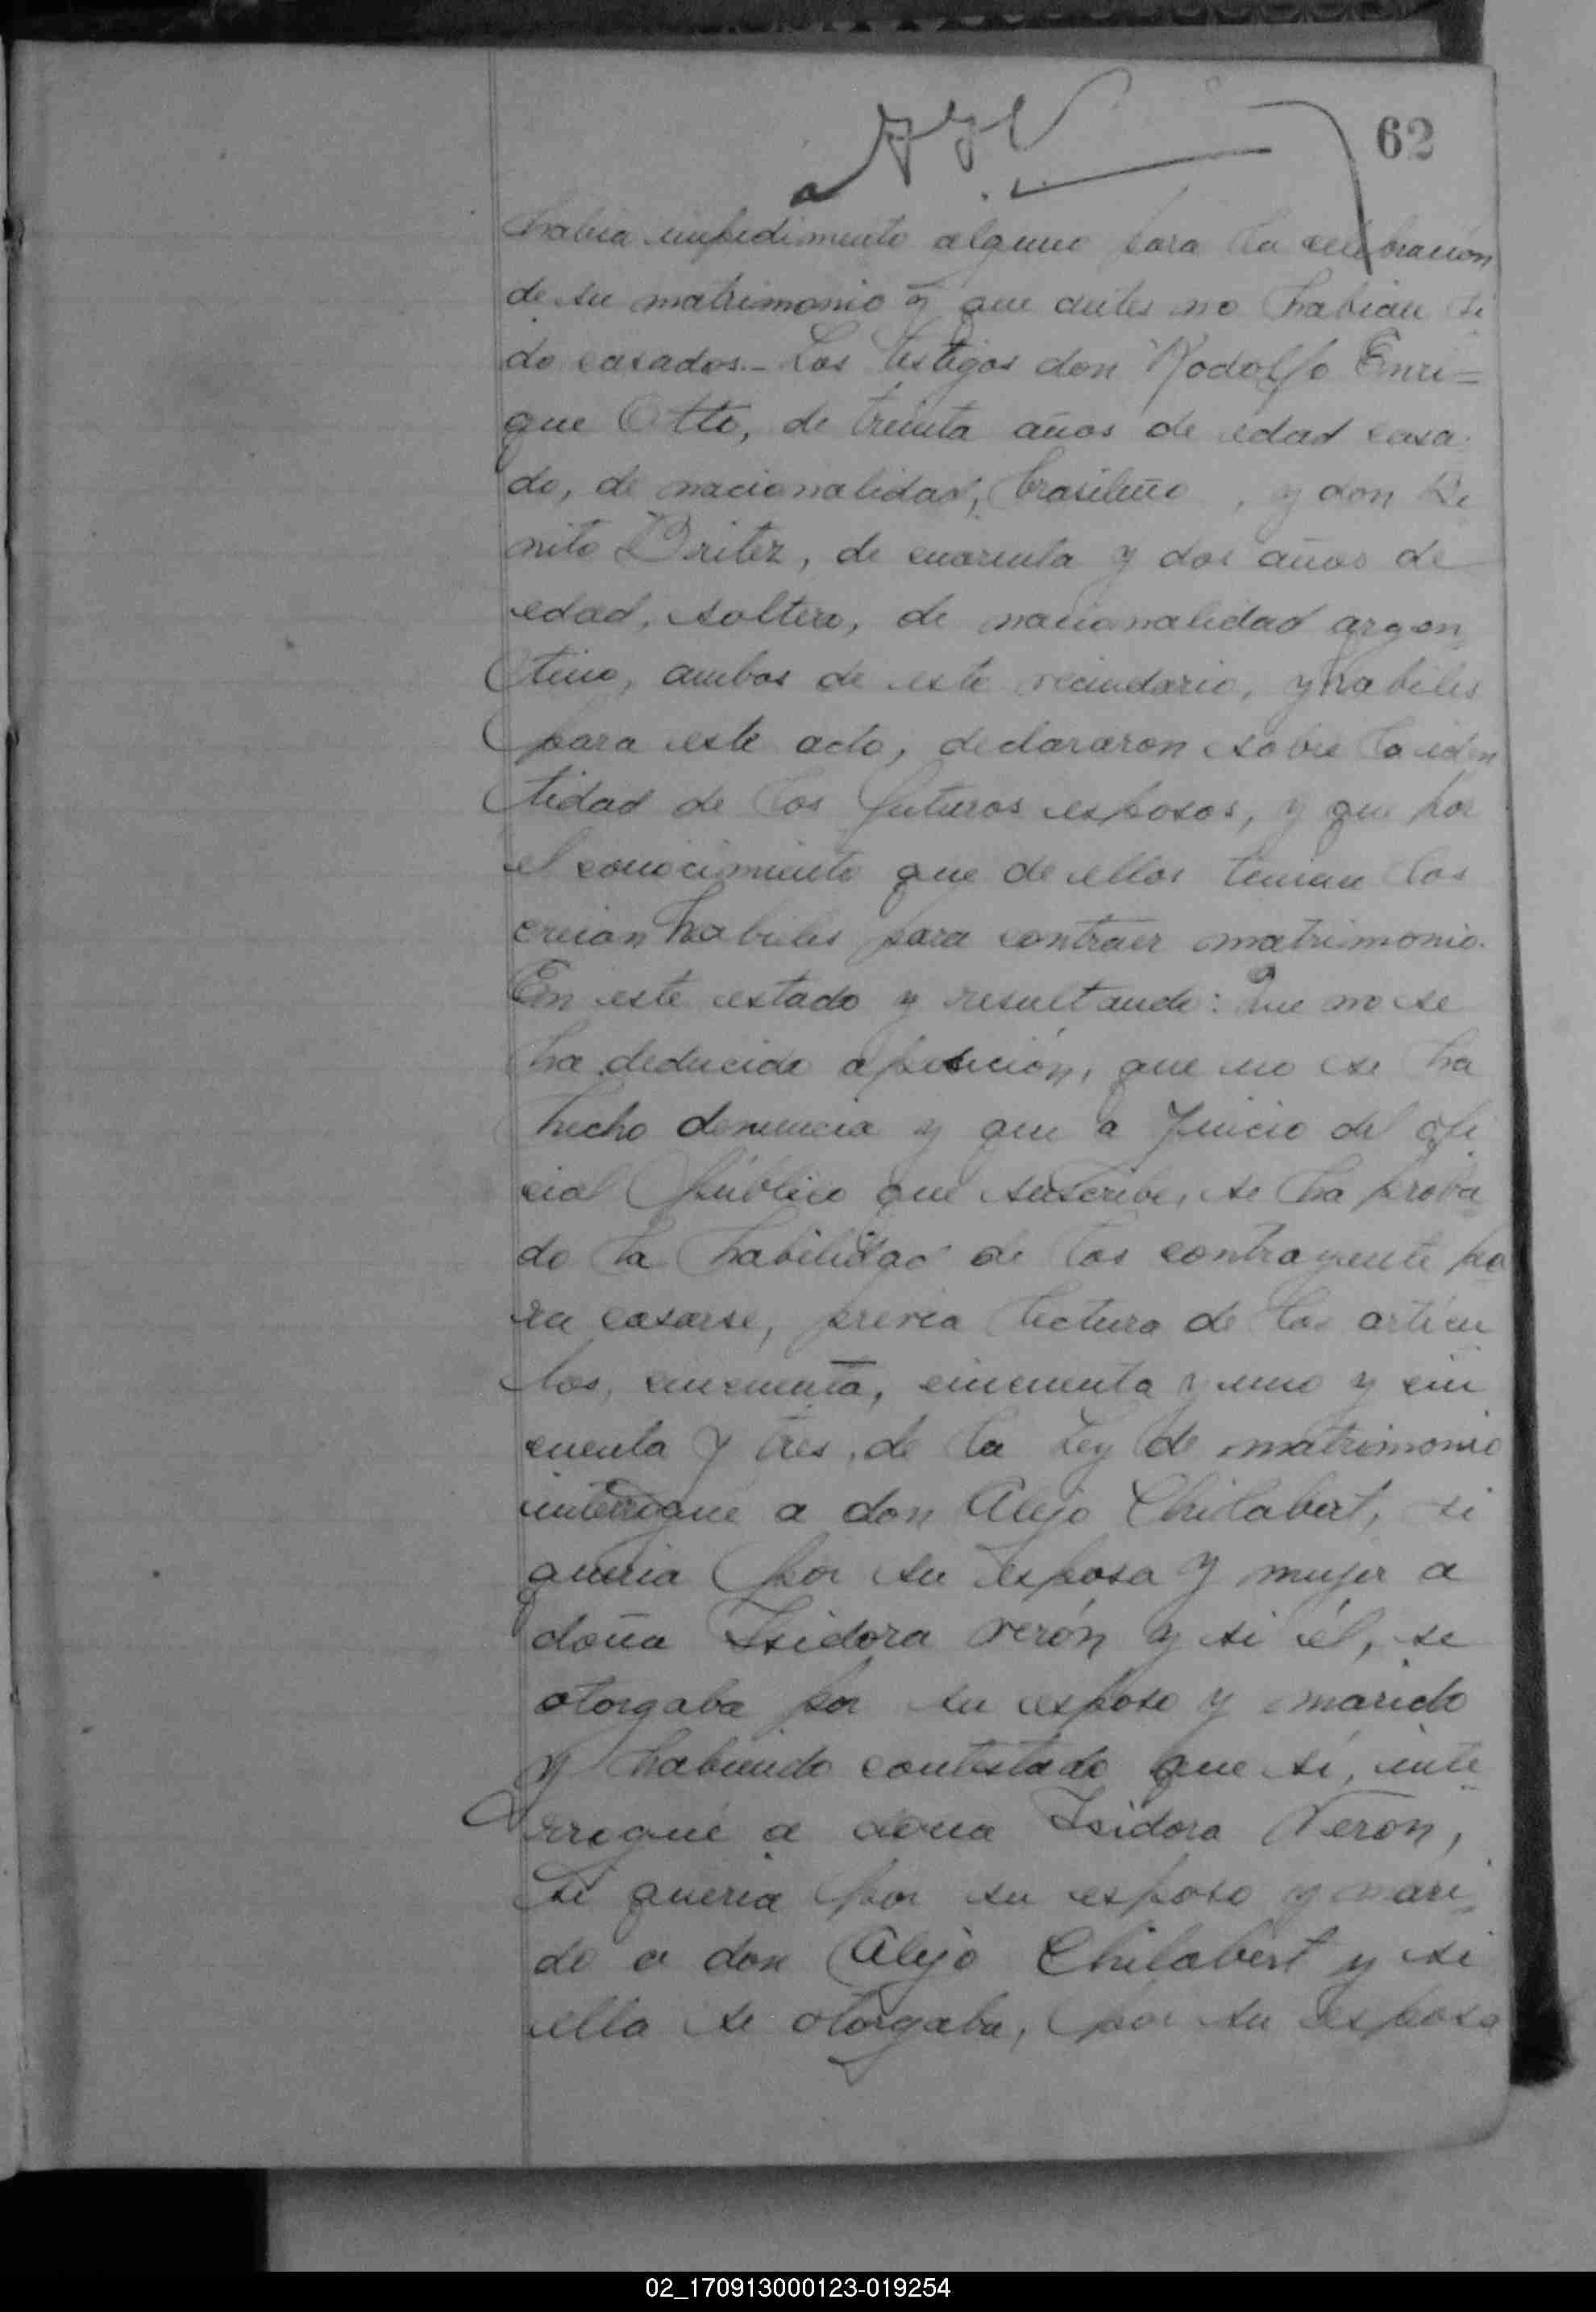 62
habia impedimento alguno para la celebración
de su matrimonio y que antes no habian si
do casados.- Los testigos don Rodolfo Enri=
que Otto, de treinta años de edad casa-
do, de nacionalidad, brasileño, y don Be
nito Britez, de cuarenta y dos años de
edad, soltero, de nacionalidad argen
tino, ambos de este vecindario, y habiles
para este acto, declararon sobre la iden
tidad de los futuros esposos, y que por
el conocimiento que de ellos tenian los
creian habiles para contraer matrimonio.
En este estado y resultando: Que no se
ha deducido oposición, que no se ha
hecho denuncia y que a Juicio del ofi
cial público que suscribe, se ha proba
do la habilidad de los contrayente pa
ra casarse, previa lectura de los articu
los, cincuenta, cincuenta y uno y cin
cuenta y tres, de la Ley de matrimonio
interrogué a don Alejo Chilabert, si
queria por su esposa y mujer a
doña Isidora Verón y si él, se
otorgaba por su esposo y marido
y habiendo contestado que sí, inte
rrogué a doña Isidora Verón,
si queria por su esposo y mari
do a don Alejo Chilabert y si
ella se otorgaba, por su esposa
02_170913000123-019254